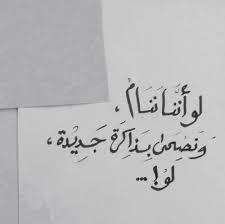 لو أنَّنا نَنَامُ ،
وَنصحىٰ بِذَاكِرَة جَدِيدة ،
لو! ...